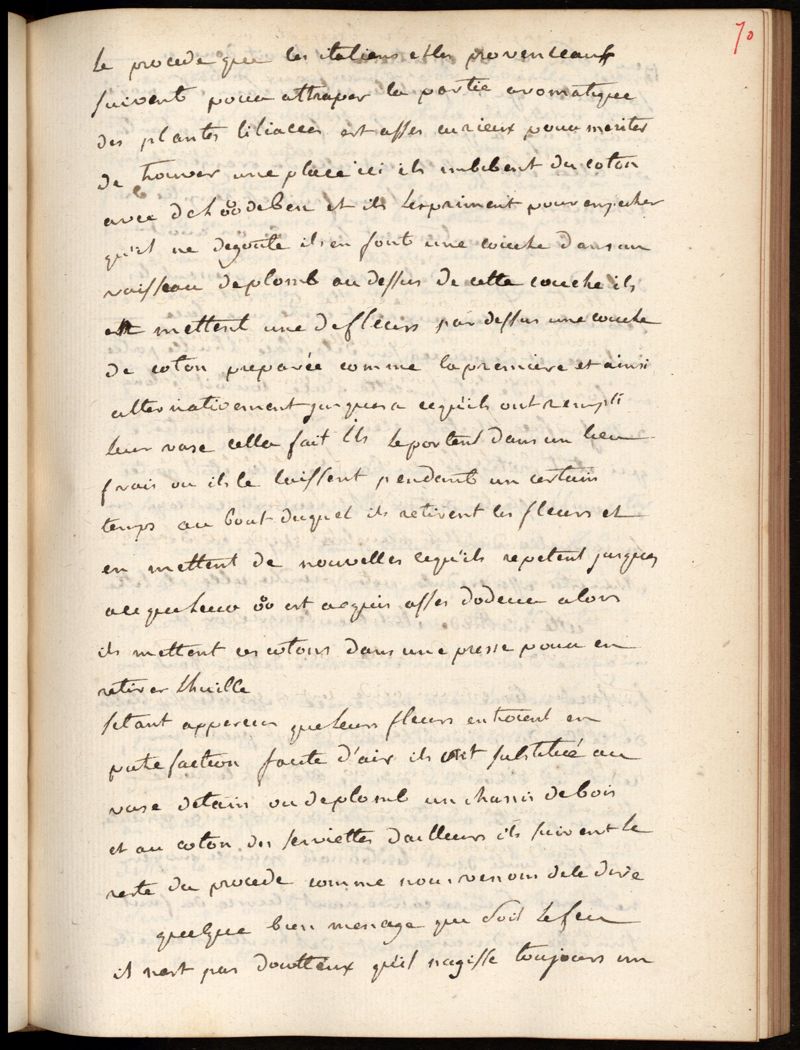 70
le procede que les italiens et les provenceaux
suivent pour attraper la partie aromatique
des plantes liliacées est asses curieux pour meriter
de trouver une place ici ils imbibent du coton
avec de l de ben et ils lexpriment pour enpecher
qu'il ne degoute ils en font une couche dans un
vaisseau de plomb au dessus de cette couche ils
mettent une de fleurs par dessus une couche
de coton preparée comme la premiere et ainsi
alternativement jusques a cequ'ils ont rempli
leur vase cella fait ils le portent dans un lieu
frais ou ils le laissent pendant un certain
temps au bout duquel ils retirent les fleurs et
en mettent de nouvelles cequ'ils repetent jusques
ace que leur est acquis asses dodeur alors
ils mettent ces cotons dans une presse pour en
retirer lhuille
setant apperceu que leurs fleurs entroient en
putefaction faute d'air ils ont substitué au
vase detain ou de plomb un chassis de bois
et au coton des serviettes dailleurs ils suivent le
reste du procede comme nous venons de le dire
quelque bien menagé que soit le feu
il nest pas doutteux qu'il nagisse toujours un